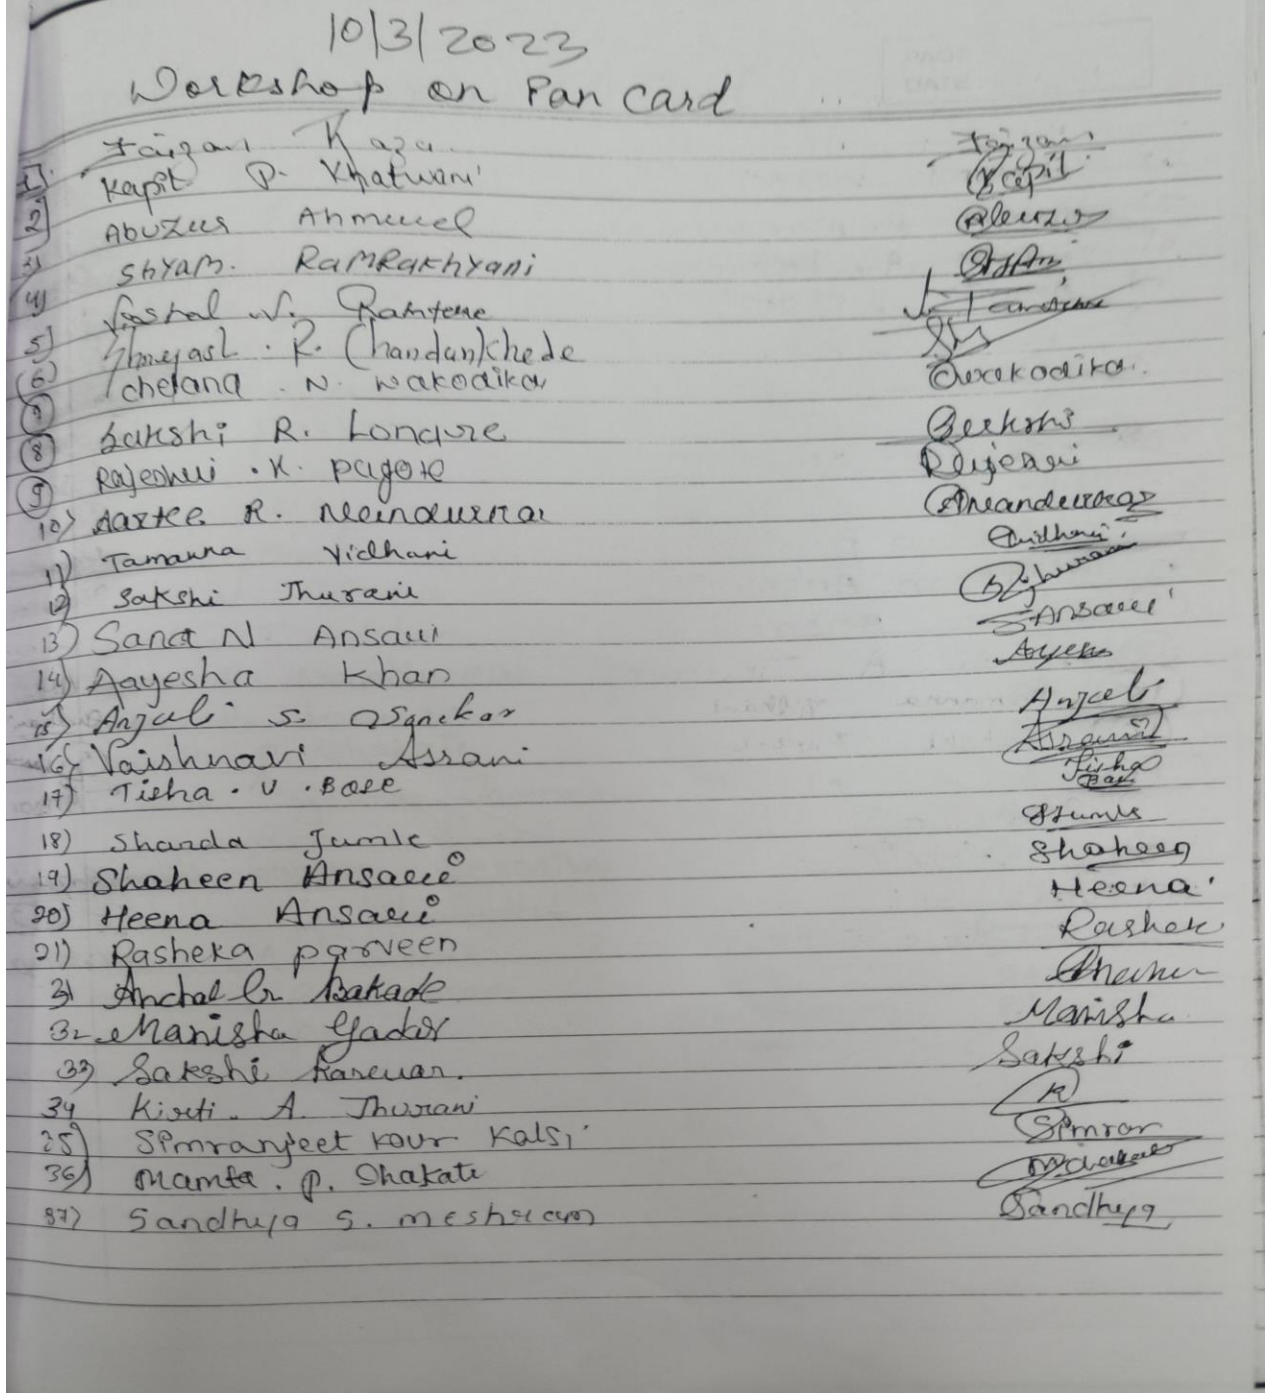 10/3/2023
Workshop on Pan Card
Faizan Kazi Faizan
1) Kapil P. Khatwani Kapil
2) Abuzus Ahmed
3) Shyam. RAMRAKHYANI
4) Vishal V. Ramteke
5) Shreyash . R. Chandankhede
6) chetana . N. wakodikar wakodikar
7)
8) Sakshi R. Londure Sakshi
9) Rajeshwi . K. pagote Rajeswi
10) Aartee R. Neandurkar Aneandurkar
11) Tamanna Vidhani Tvidhani
12) Sakshi Thurani
13) Sana N Ansari S. Ansari
14) Aayesha Khan Aayesha
15) Anjali S. Osankar Anjali
16) Vaishnavi Assrani Assrani
17) Tisha . U . Bose Tisha Bose
18) Sharda Jumle SJumle
19) Shaheen Ansari Shaheen
20) Heena Ansari Heena
21) Rasheka parveen Rashek
31 Anchal G Bakade
32 Manisha Yadav Manisha
33) Sakshi Karewar. Sakshi
34 Kirti . A. Thurani K
35) Simranjeet kour Kalsi Simran
36) Mamta . P. Shakate
37) Sandhya S. meshram Sandhya